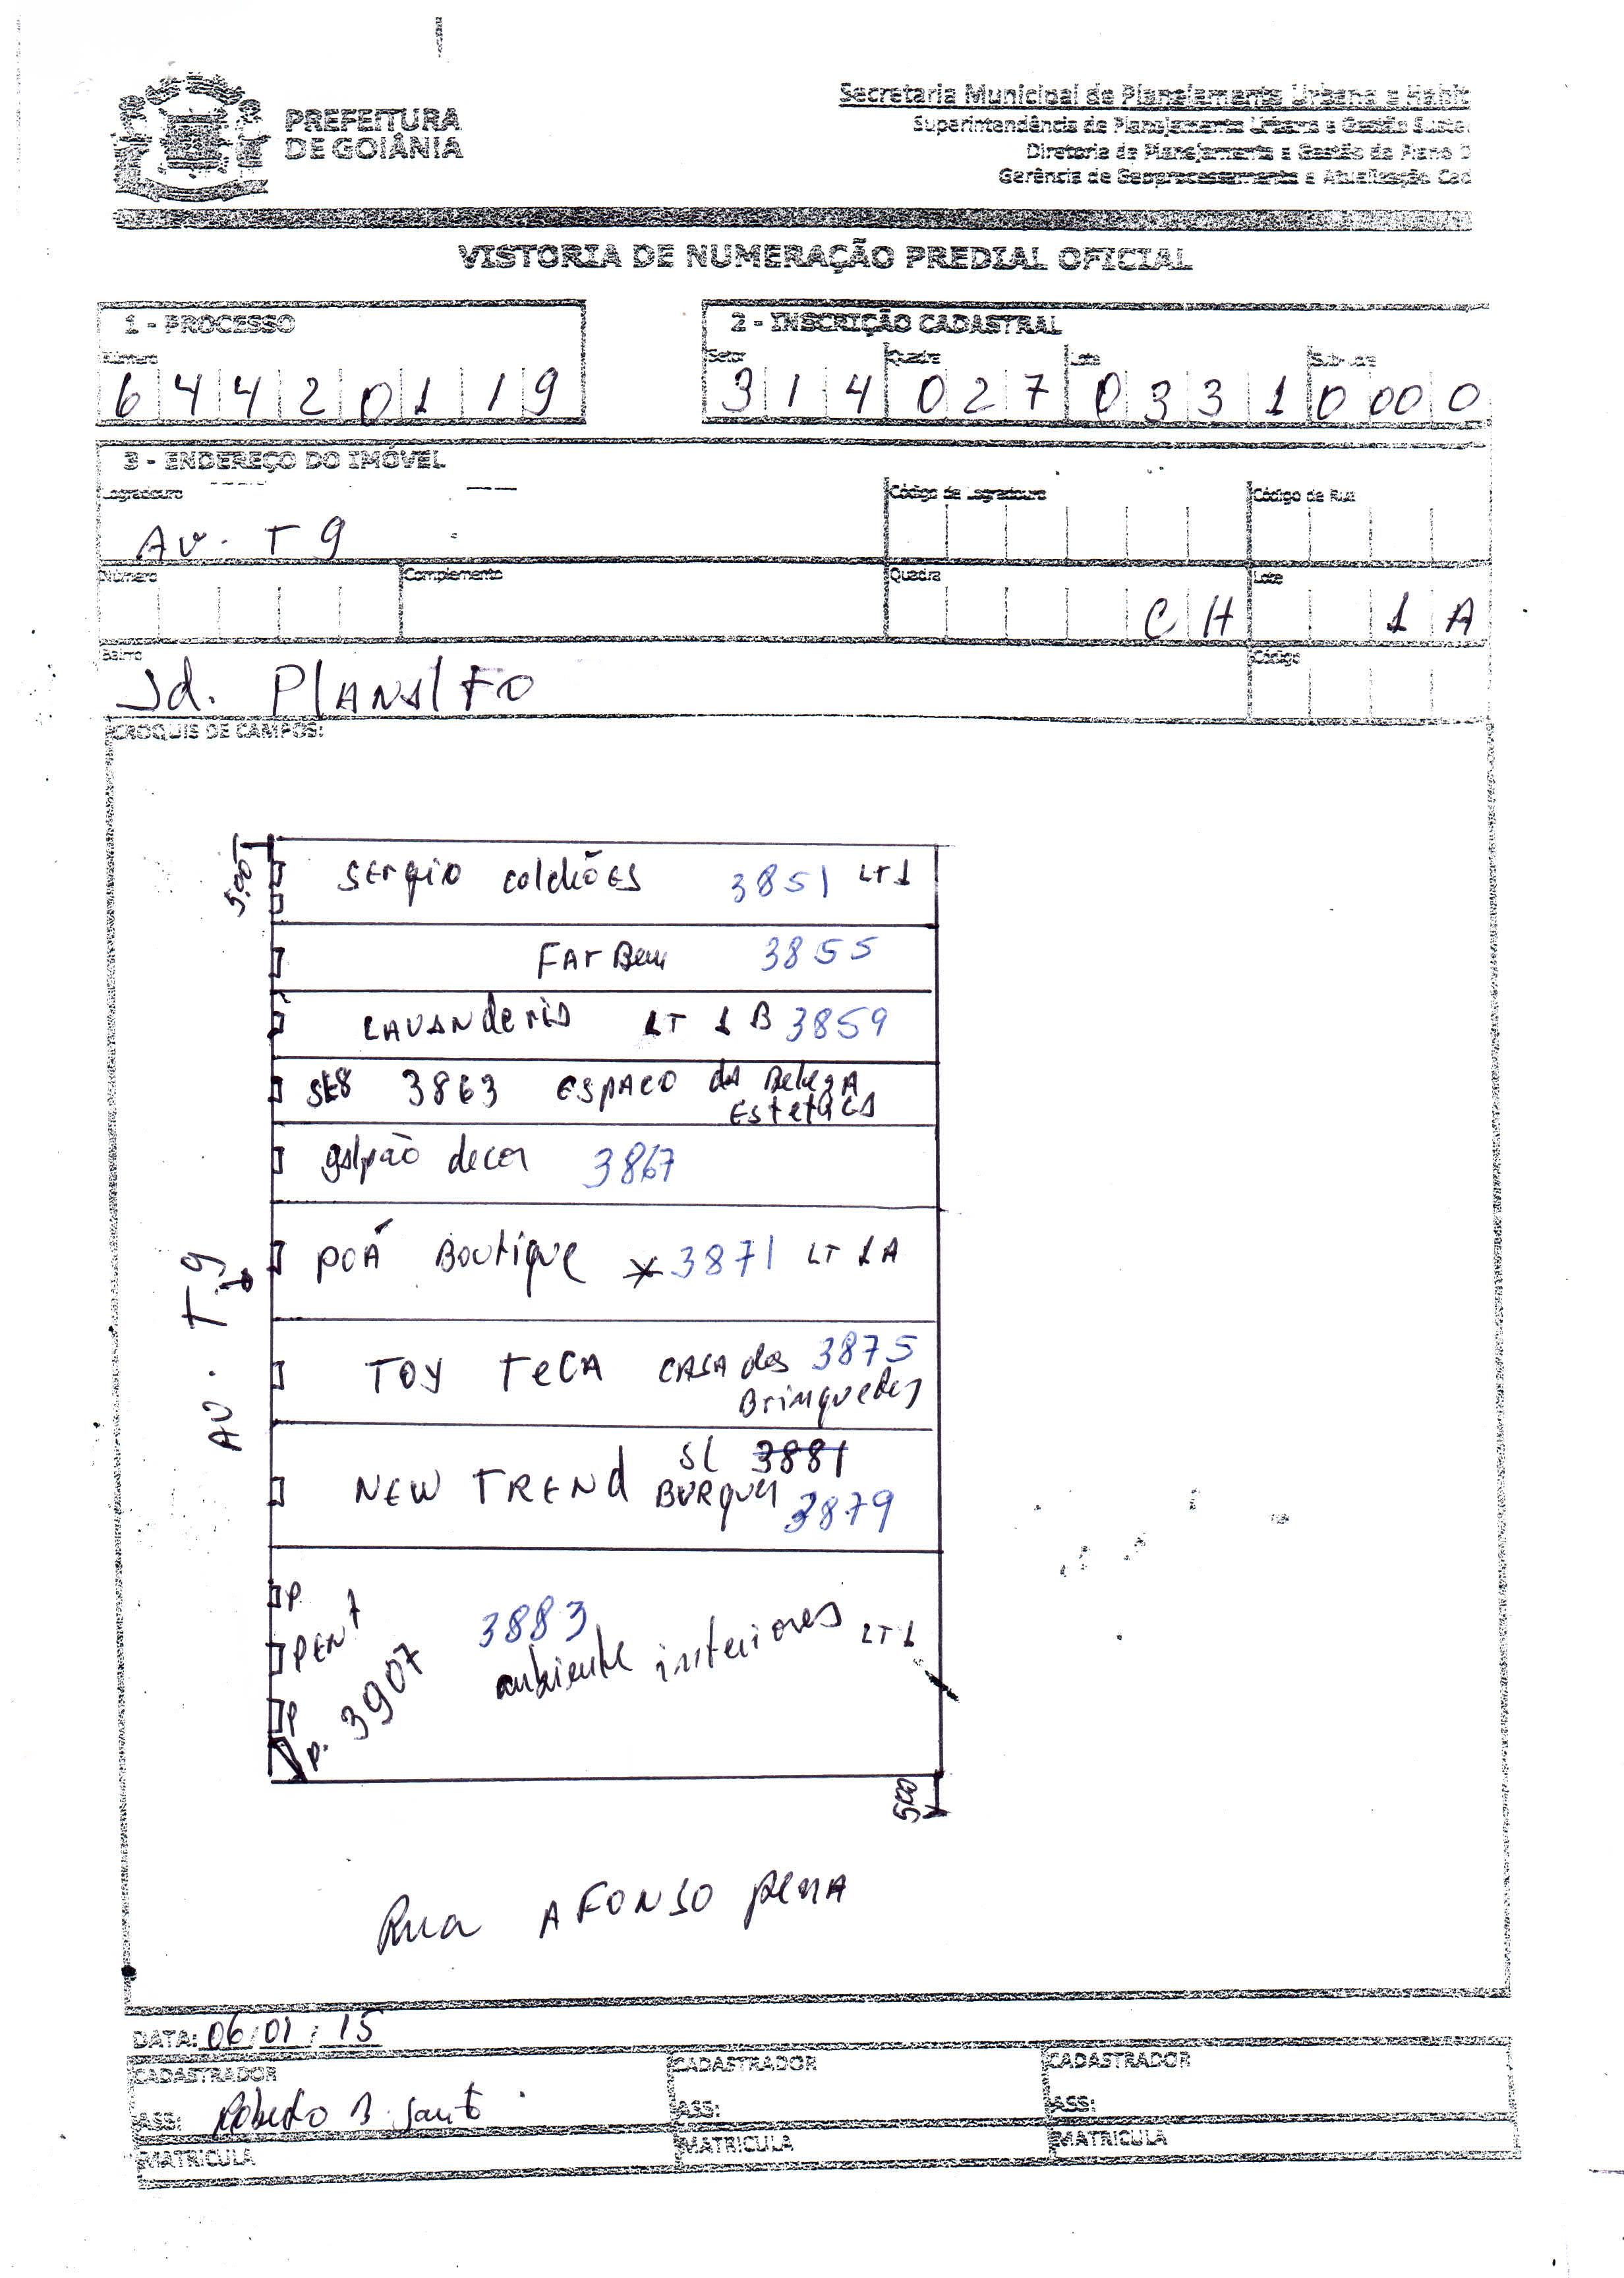 PREFEITURA
DE GOIÂNIA
Secretaria Municipal de Planejamento Urbano e Habit
Superintendência de Planejamento Urbano e Gestão Suste
Diretoria de Planejamento e Gestão do Plano D
Gerência de Geoprocessamento e Atualização Cad
VISTORIA DE NUMERAÇÃO PREDIAL OFICIAL
1 - PROCESSO
Número
6 4 4 2 0 1 1 9
2 - INSCRIÇÃO CADASTRAL
Setor Quadra Lote Sub-Lote
3 1 4 0 2 7 0 3 3 1 0 00 0
3 - ENDEREÇO DO IMÓVEL
Logradouro Código de Logradouro Código da Rua
Av. T 9
Número Complemento Quadra Lote
C H 1 A
Bairro Código
Jd. PlANAlTO
CROQUIS DE CAMPOS:
5,00
SErgio colchões 3851 LT 1
FArBem 3855
LAVANderia LT 1 B 3859
3863 ESPACO da Beleza
Estetica
galpão decor 3867
POÁ Boutique * 3871 LT 1 A
TOY TeCA CASA dos 3875
Brinquedos
SL 3881
NEW TREND BURguer 3879
P.
PENT
P
P. 3907
3883
ambiente interiores LT 1
AV. T 9
5,00
Rua AFONSO peNA
DATA: 06/01/15
CADASTRADOR CADASTRADOR CADASTRADOR
ASS: Roberto B. Santo ASS: ASS:
MATRICULA MATRICULA MATRICULA